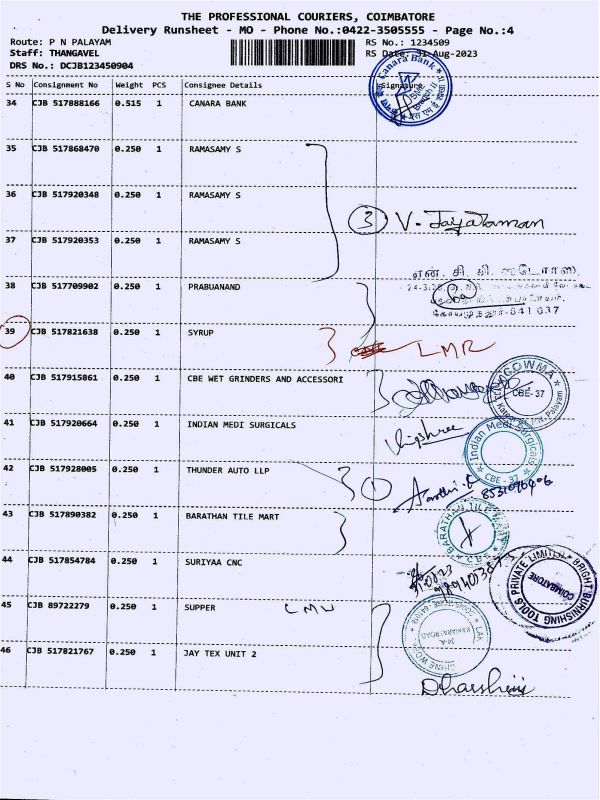 THE PROFESSIONAL COURIERS, COIMBATORE
Delivery Runsheet - MO - Phone No.:0422-3505555 - Page No.:4
Route: P N PALAYAM RS No.: 1234509
Staff: THANGAVEL RS Date: 31-Aug-2023
DRS No.: DCJB123450904
S No Consignment No Weight PCS Consignee Details Signature
34 CJB 517888166 0.515 1 CANARA BANK
Canara Bank
35 CJB 517868470 0.250 1 RAMASAMY S
36 CJB 517920348 0.250 1 RAMASAMY S
3 V. Jayaraman
37 CJB 517920353 0.250 1 RAMASAMY S
என். சி. சி. ஸ்டோர்ஸ்
38 CJB 517709902 0.250 1 PRABUANAND
641 037
39 CJB 517821638 0.250 1 SYRUP
LMR
40 CJB 517915861 0.250 1 CBE WET GRINDERS AND ACCESSORI
GOWMA CBE-37
41 CJB 517920664 0.250 1 INDIAN MEDI SURGICALS
Indian Medi Surgicals CBE - 37
42 CJB 517928005 0.250 1 THUNDER AUTO LLP
1
43 CJB 517890382 0.250 1 BARATHAN TILE MART
BARATHAN TILE MART
44 CJB 517854784 0.250 1 SURIYAA CNC
PRIVATE LIMITED BRIGHT BURNISHING TOOLS COIMBATORE
45 CJB 89722279 0.250 1 SUPPER
KAMARAJ ROAD
46 CJB 517821767 0.250 1 JAY TEX UNIT 2